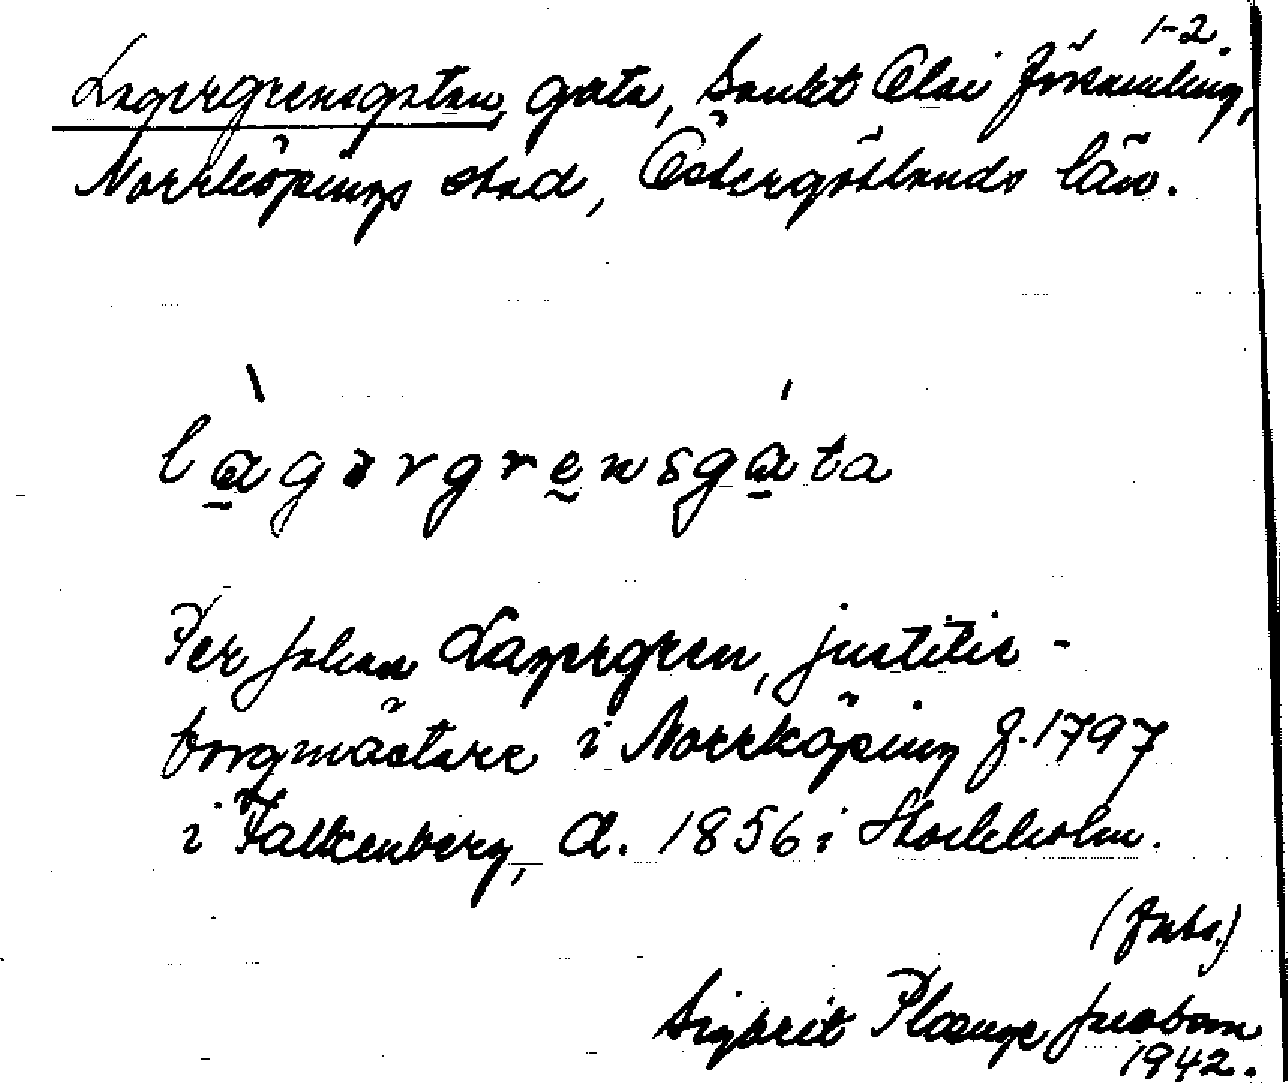 1-2.
Lagergrensgatan, gata, Sankt Olai församling,
Norrköpings stad, Östergötlands län.
làgərgrensgáta
Per Johan Lagergren, justitie-
borgmästare i Norrköping f. 1797
i Falkenberg, d. 1856 i Stockholm.
Sigbrit Plænge Jacobson
1942.